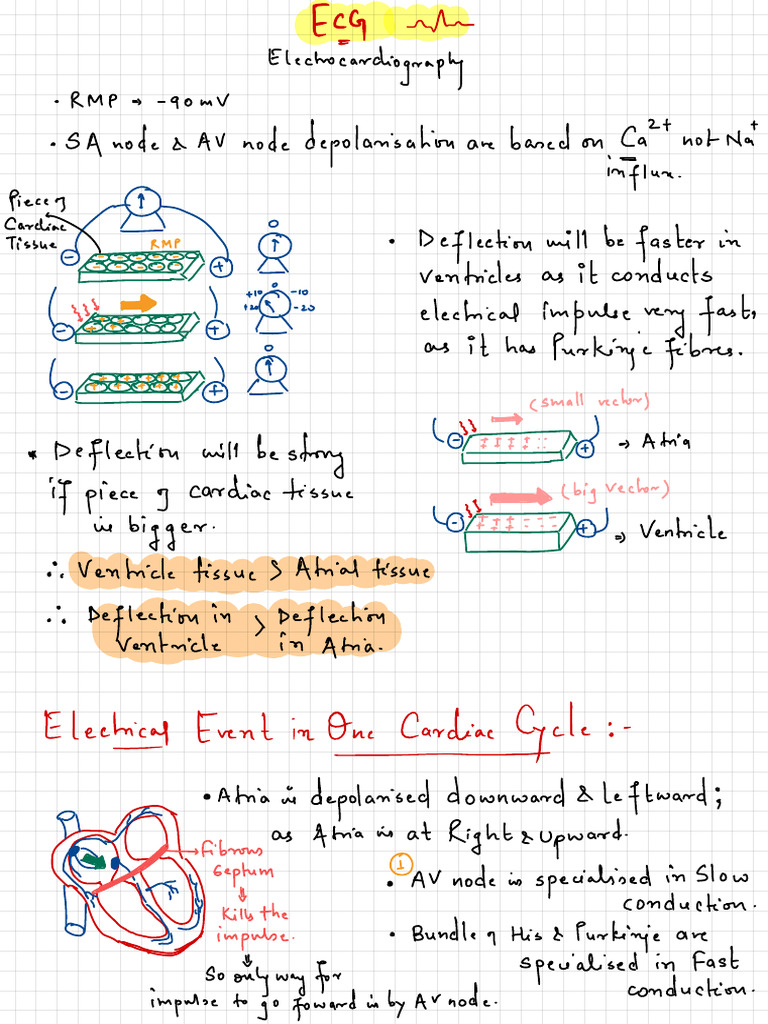 ECG
Electrocardiography
· RMP → -90mV
· SA node & AV node depolarisation are based on Ca²⁺ not Na⁺
influx.
Piece of
Cardiac
Tissue
RMP
- +
0
- +
+10 0 -10
+20 -20
- +
0
· Deflection will be faster in
ventricles as it conducts
electrical impulse very fast,
as it has Purkinje fibres.
(small vector)
- + → Atria
(big vector)
- + ⇒ Ventricle
* Deflection will be strong
if piece of cardiac tissue
is bigger.
∴ Ventricle tissue > Atrial tissue
∴ Deflection in > Deflection
Ventricle in Atria.
Electrical Event in One Cardiac Cycle :-
· Atria is depolarised downward & leftward;
as Atria is at Right & upward.
→ Fibrous
Septum
↓
Kills the
impulse.
↓
So only way for
impulse to go foward is by AV node.
1
· AV node is specialised in Slow
conduction.
· Bundle of His & Purkinje are
specialised in Fast
conduction.